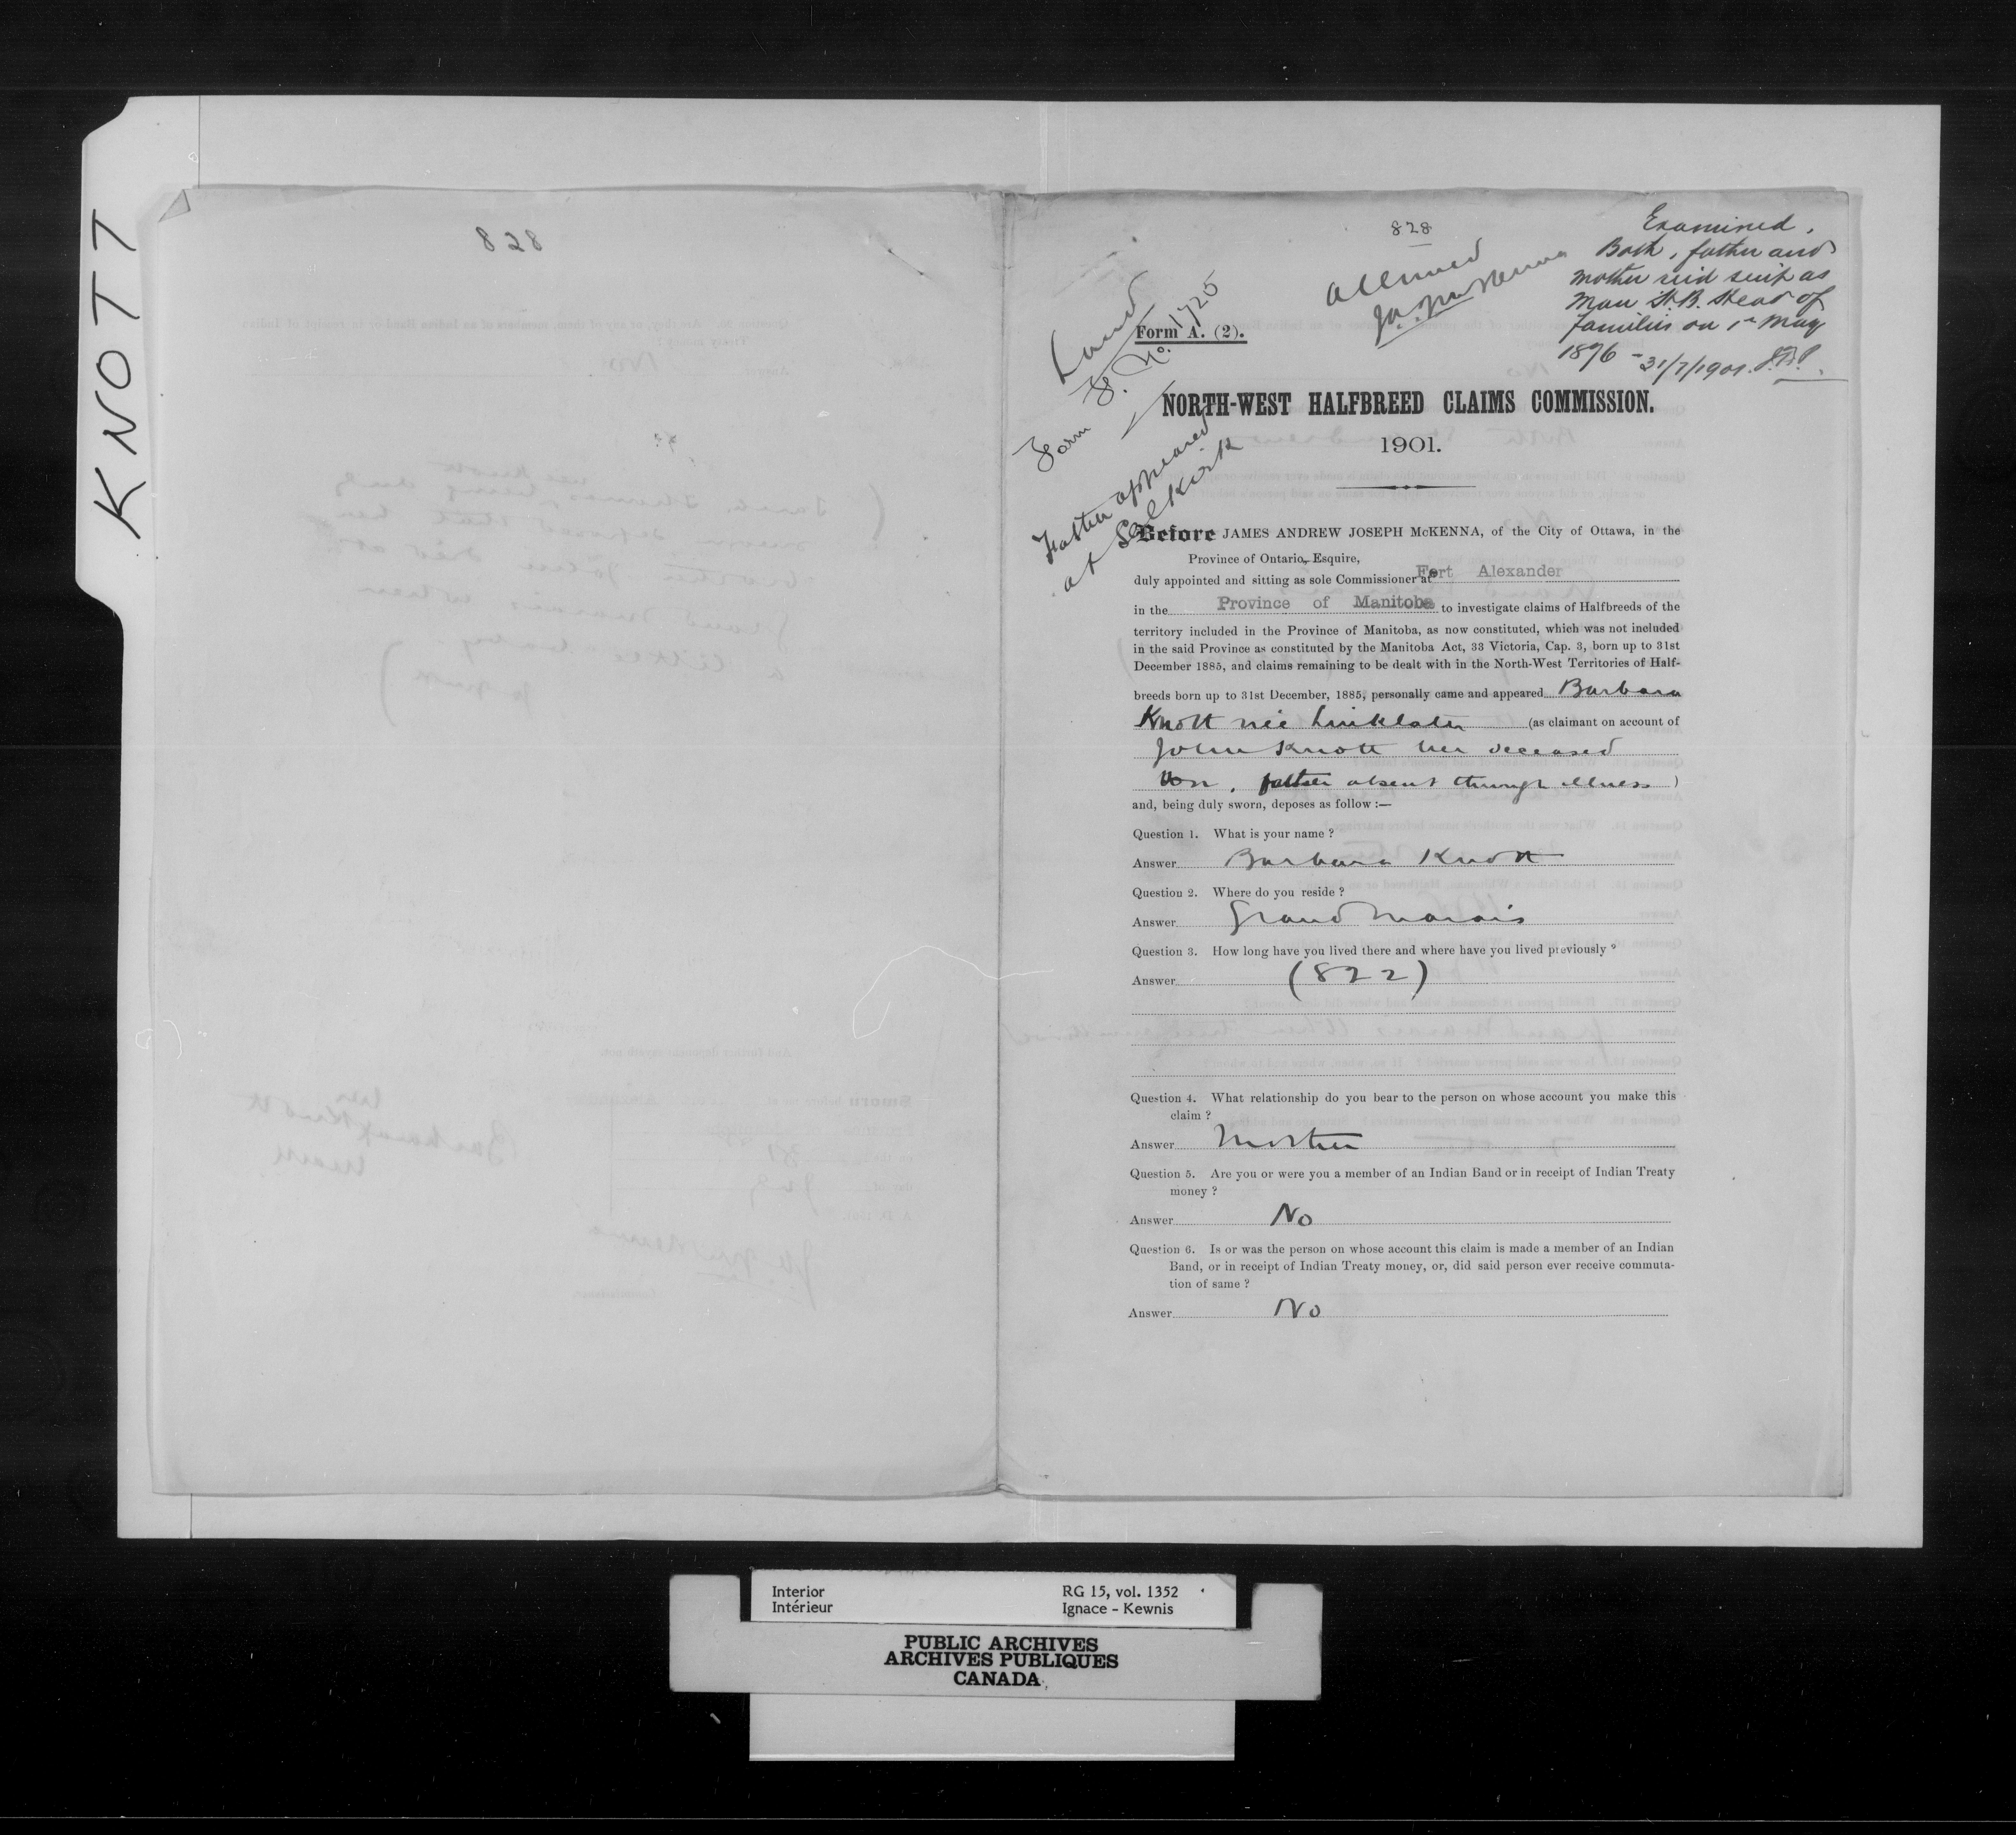 KNOTT
828
828
Examined.
Both, father and
mother rec'd scrip as
Man. H.B. Heads of
families on 1st May
1876 - 31/7/1901.
Allowed
Land
Form F. No. 1725
Form A. (2).
Father appeared
at Selkirk
NORTH-WEST HALFBREED CLAIMS COMMISSION.
1901.
Before JAMES ANDREW JOSEPH McKENNA, of the City of Ottawa, in the
Province of Ontario, Esquire,
duly appointed and sitting as sole Commissioner at Fort Alexander
in the Province of Manitoba to investigate claims of Halfbreeds of the
territory included in the Province of Manitoba, as now constituted, which was not included
in the said Province as constituted by the Manitoba Act, 33 Victoria, Cap. 3, born up to 31st
December 1885, and claims remaining to be dealt with in the North-West Territories of Half-
breeds born up to 31st December, 1885, personally came and appeared Barbara
Knott née Linklater (as claimant on account of
John Knott her deceased
son, father absent through illness)
and, being duly sworn, deposes as follow :—
Question 1. What is your name ?
Answer Barbara Knott
Question 2. Where do you reside ?
Answer Grand Marais
Question 3. How long have you lived there and where have you lived previously ?
Answer (822)
Question 4. What relationship do you bear to the person on whose account you make this
claim ?
Answer Mother
Question 5. Are you or were you a member of an Indian Band or in receipt of Indian Treaty
money ?
Answer No
Question 6. Is or was the person on whose account this claim is made a member of an Indian
Band, or in receipt of Indian Treaty money, or, did said person ever receive commuta-
tion of same ?
Answer No
Interior
Intérieur
RG 15, vol. 1352
Ignace - Kewnis
PUBLIC ARCHIVES
ARCHIVES PUBLIQUES
CANADA